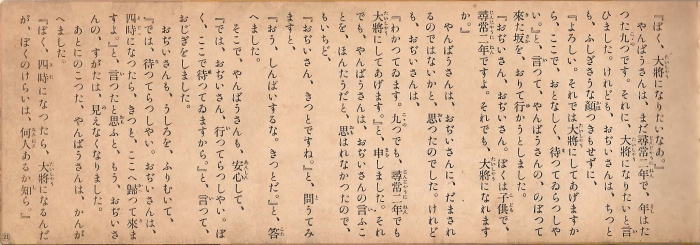 『ぼく、大將になりたいなあ。』
やんぱうさんは、まだ尋常二年で、年はた
つた九つです。それに、大將になりたいと言
ひました。けれども、おぢいさんは、ちつと
も、ふしぎさうな顔つきもせずに、
『よろしい。それでは大將にしてあげますか
ら、こゝで、おとなしく、待つてゐらつしや
い。』と、言つて、やんぱうさんの、のぼつて
來た坂を、おりて行かうとしました。
『おぢいさん、おぢいさん。ぼくは子供で、
尋常二年ですよ。それでも、大將になれます
か。』
やんぱうさんは、おぢいさんに、だまされ
るのではないかと、思つたのでした。けれど
も、おぢいさんは、
『わかつてゐます。九つでも、尋常二年でも
大將にしてあげます。』と、申しました。それ
でも、やんぱうさんは、おぢいさんの言ふこ
とを、ほんたうだと、思はれなかつたので、
もいちど、
『おぢいさん、きつとですね。』と、問うてみ
ますと、
『おう、しんぱいするな。きつとだ。』と、答
へました。
そこで、やんぱうさんも、安心して、
『では、おぢいさん、行つてらつしやい。ぼ
く、こゝで待つてゐますから。』と、言つて、
おじぎをしました。
おぢいさんも、うしろを、ふりむいて、
『では、待つてらつしやい。おぢいさんは、
四時になつたら、きつと、こゝへ歸つて來ま
すよ。』と、言つたと思ふと、もう、おぢいさ
んの、すがたは、見えなくなりました。
あとにのこつた、やんぱうさんは、かんが
へました。
『ぼく、四時になつたら、大將になるんだ
が、ぼくのけらいは、何人あるか知ら。』
21